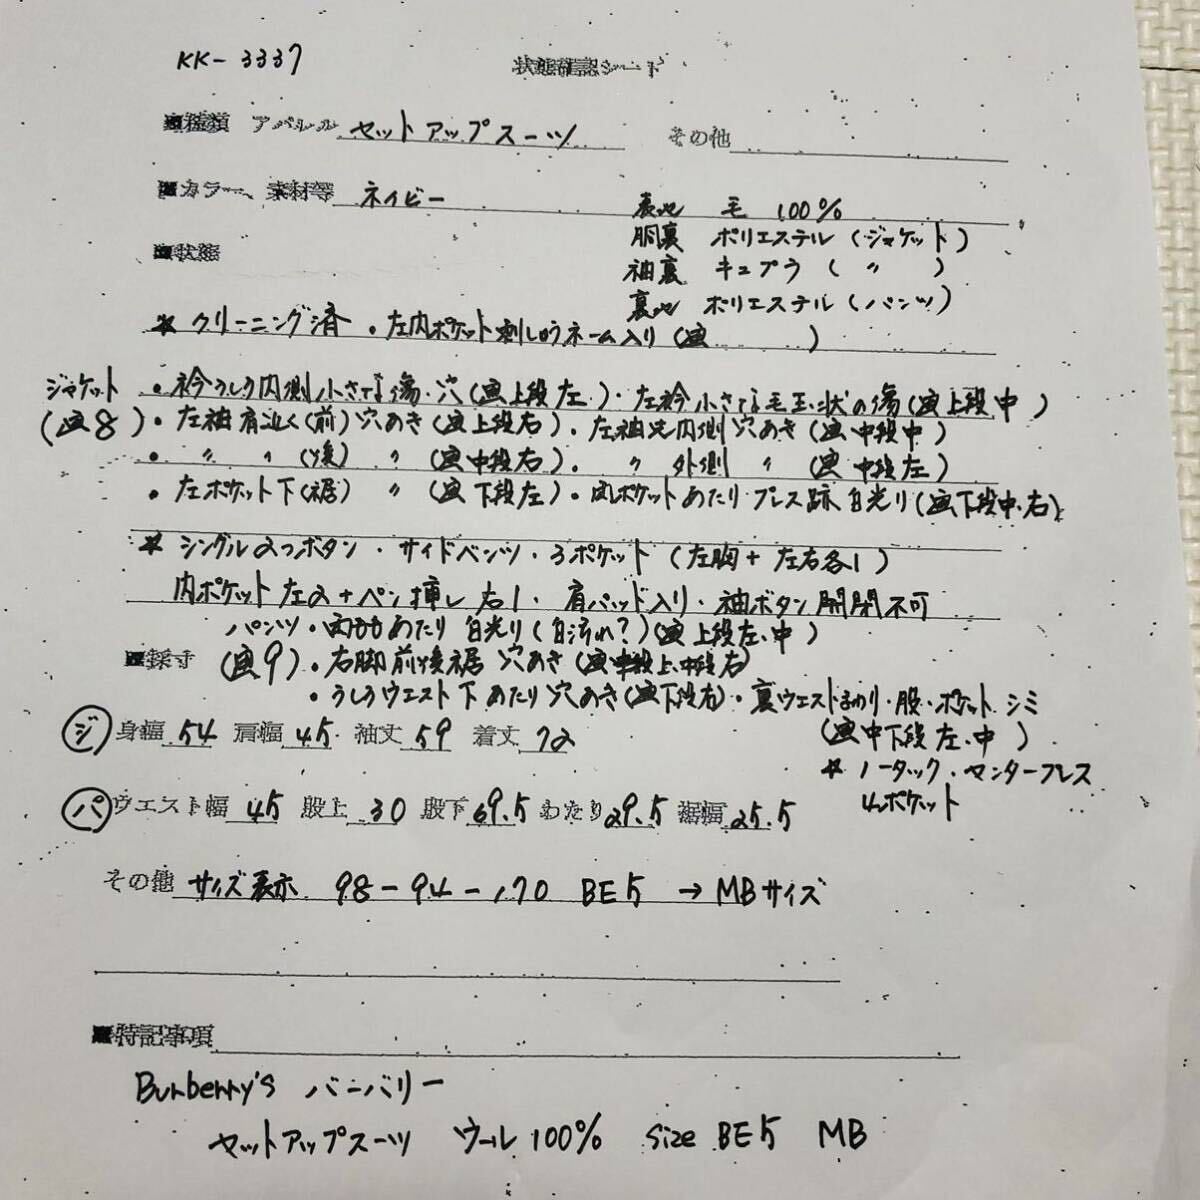 KK-3337
状態確認シート
■種類 アパレル セットアップスーツ その他
■カラー、素材等 ネイビー 表地 毛 100%
胴裏 ポリエステル(ジャケット)
■状態 袖裏 キュプラ( 〃 )
裏地 ポリエステル(パンツ)
* クリーニング済・左内ポケット刺しゅうネーム入り(画 )
ジャケット ・衿うしろ内側小さな傷・穴(画上段左)・左衿小さな毛玉状の傷(画上段中)
(画8)・左袖肩近く(前)穴あき(画上段右)・左袖先内側穴あき(画中段中)
・〃 〃 (後) 〃 (画中段右)・ 〃 外側 〃 (画中段左)
・左ポケット下(裾) 〃 (画下段左)・両ポケットあたりプレス跡 白光り(画下段中・右)
* シングル2つボタン・サイドベンツ・3ポケット(左胸+左右各1)
内ポケット左2+ペン挿し右1・肩パッド入り・袖ボタン開閉不可
パンツ・両ももあたり白光り(白汚れ?)(画上段左、中)
■採寸 (画9)・右脚前後裾 穴あき(画中段上、中段右)
・うしろウエスト下あたり穴あき(画下段右)・裏ウエストまわり・股・ポケット シミ
(画中下段左、中)
ジ 身幅 54 肩幅 45 袖丈 59 着丈 72
* ノータック・センタープレス
4ポケット
パ ウエスト幅 45 股上 30 股下 69.5 わたり 29.5 裾幅 25.5
その他 サイズ表示 98-94-170 BE5 → MBサイズ
■特記事項
Burberry's バーバリー
セットアップスーツ ウール100% size BE5 MB